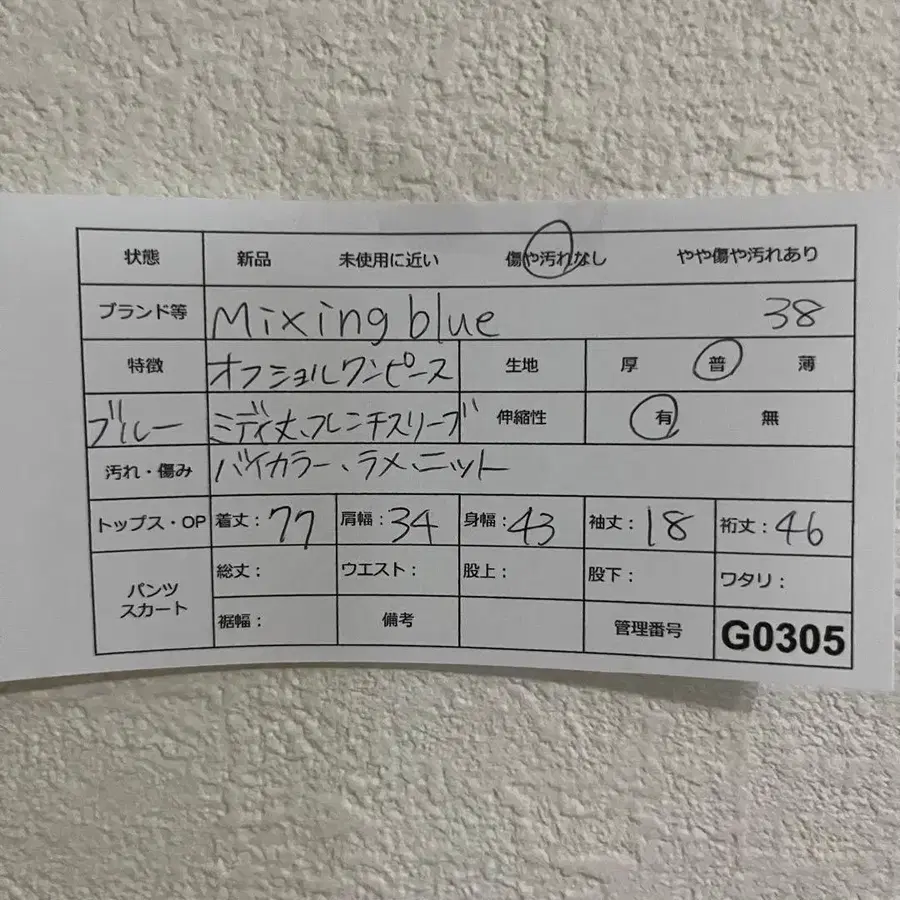 状態 新品 未使用に近い 傷や汚れなし やや傷や汚れあり
ブランド等 Mixing blue 38
特徴 オフショルワンピース 生地 厚 普 薄
ブルー ミディ丈、フレンチスリーブ 伸縮性 有 無
汚れ・傷み バイカラー、ラメ、ニット
トップス・OP 着丈：77 肩幅：34 身幅：43 袖丈：18 裄丈：46
パンツ スカート 総丈： ウエスト： 股上： 股下： ワタリ：
裾幅： 備考 管理番号 G0305